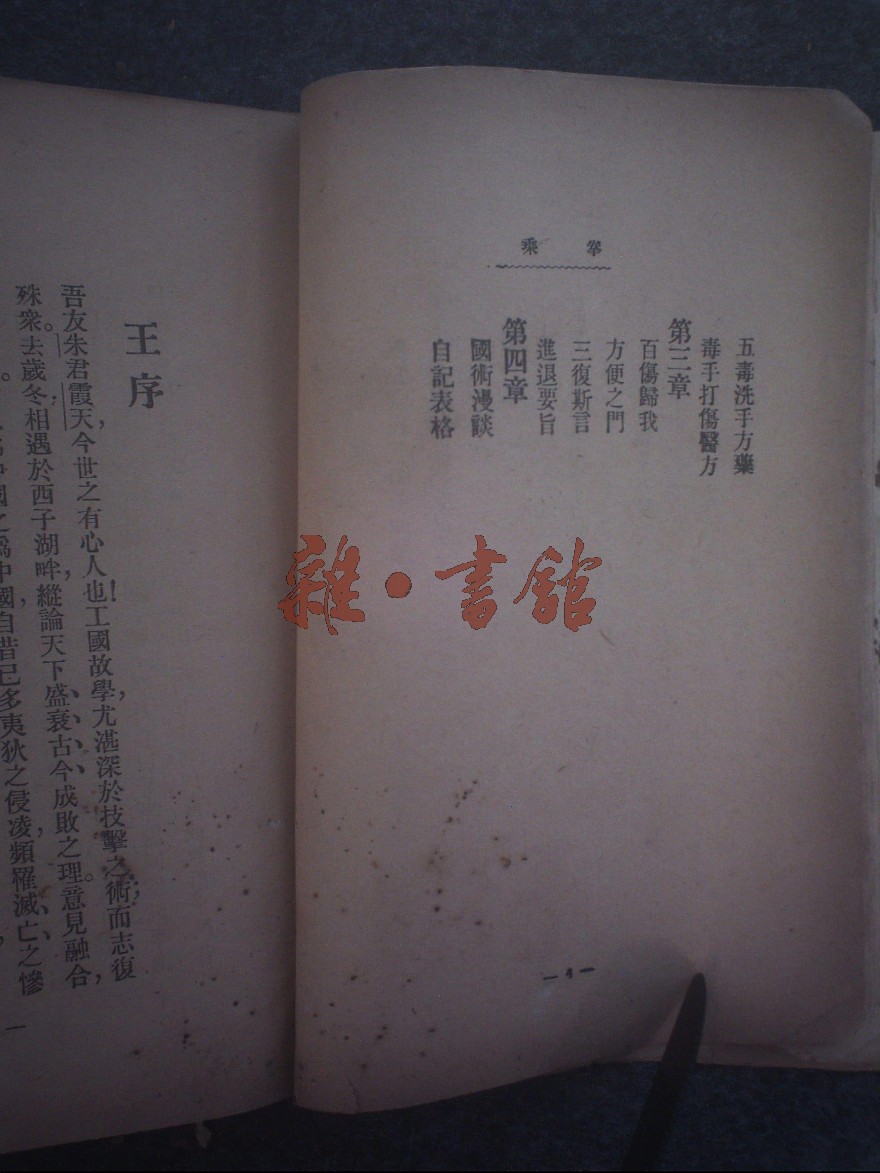 乘
五毒洗手方藥
毒手打傷醫方
第三章
百傷歸我
方便之門
三復斯言
進退要旨
第四章
國術漫談
自記表格
—4—
王序
吾友朱君霞天，今世之有心人也！工國故學，尤湛深於技擊之術，而志復
殊衆。去歲冬，相遇於西子湖畔，縱論天下盛、衰、古、今、成敗之理。意見融合，
國之爲中國，自昔已多夷狄之侵凌，頻罹滅、亡、之慘
一
雜·書館